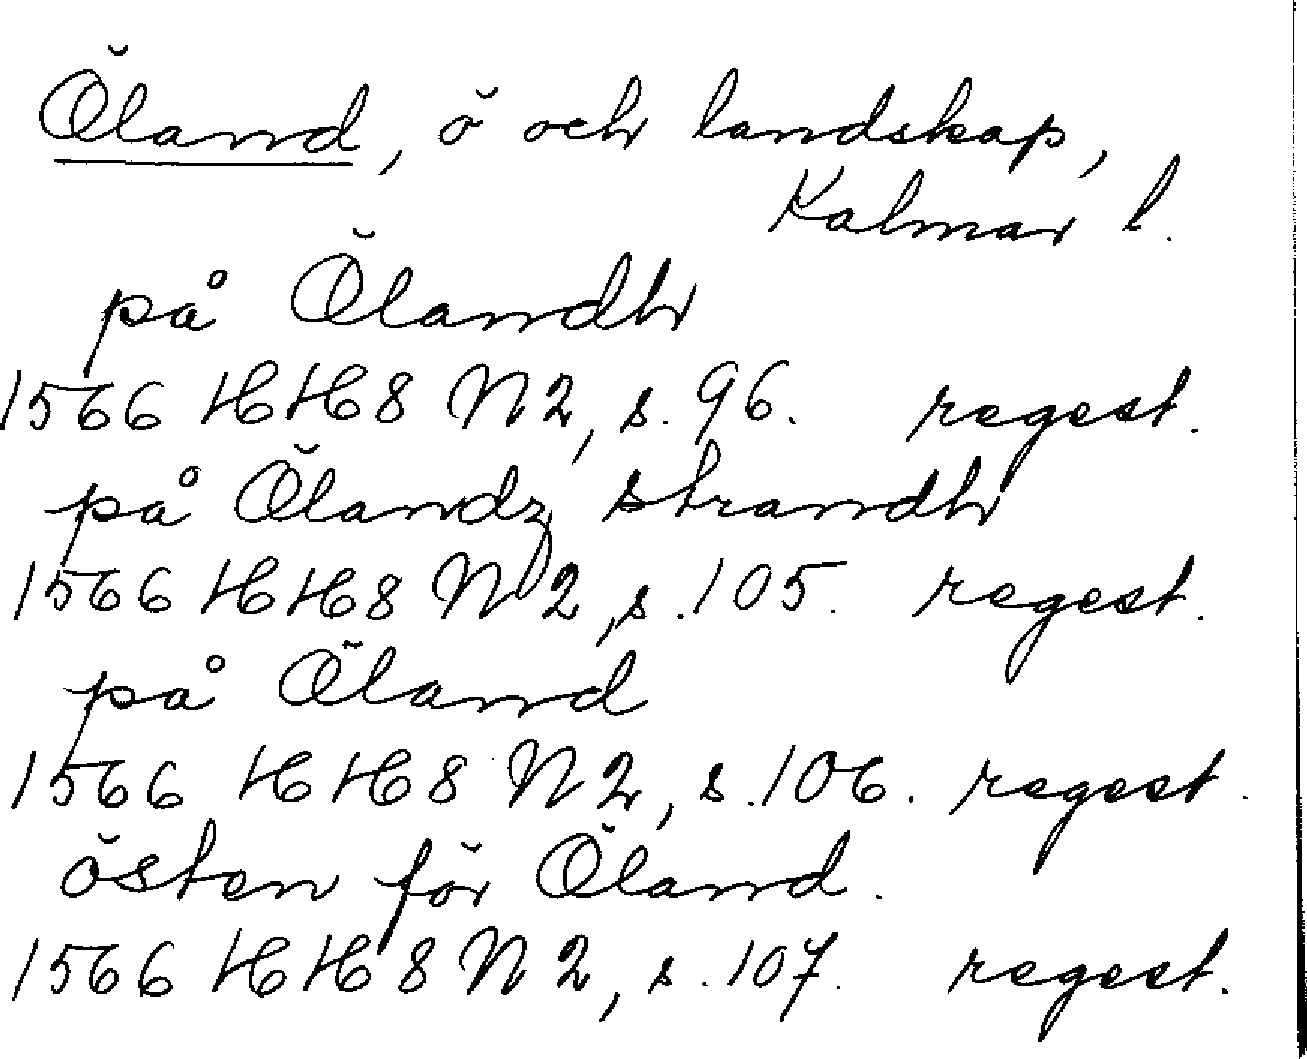 Öland, ö och landskap,
Kalmar l.
på Ölandh
1566 HH8 N2, s. 96. regest.
på Ölandz strandh
1566 HH8 N2, s. 105. regest.
på Öland
1566 HH8 N2, s. 106. regest.
östen för Öland.
1566 HH8 N2, s. 107. regest.